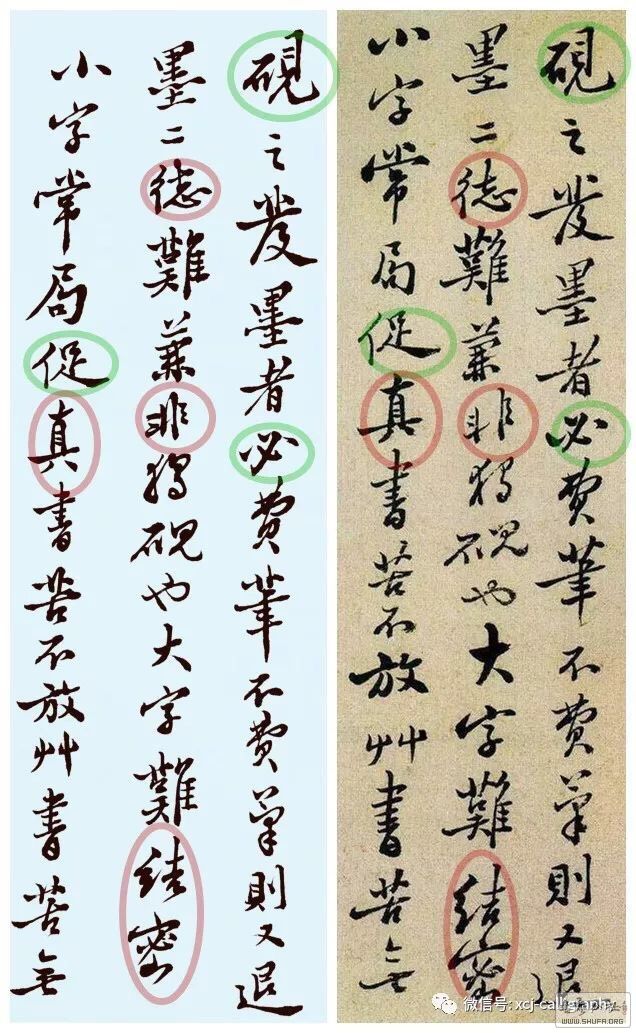 硯之發墨者必費筆不費筆則又退
墨二德難兼非獨硯也大字難結密
小字常局促真書苦不放艸書苦無
硯之發墨者必費筆不費筆則又退
墨二德難兼非獨硯也大字難結密
小字常局促真書苦不放艸書苦無
微信号: xcj-calligraphy
WWW.SHUFA.ORG